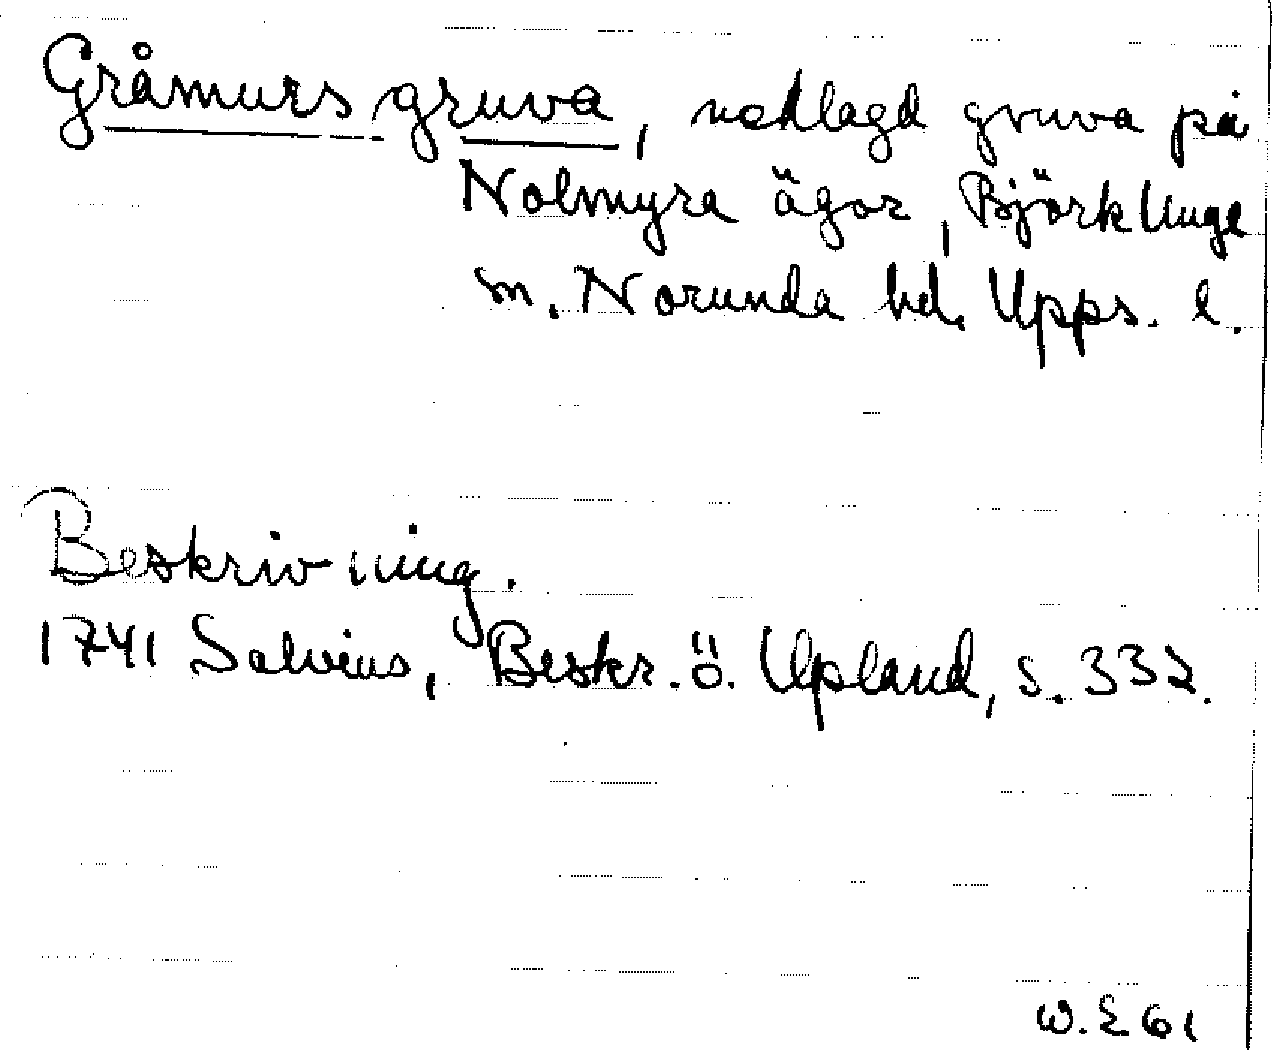 Gråmurs gruva, nedlagd gruva på
Nolmyra ägor, Björklinge
sn. Norunda hd. Upps. l.
Beskrivning.
1741 Salvius, Beskr. ö. Upland, s. 332.
W. E 61